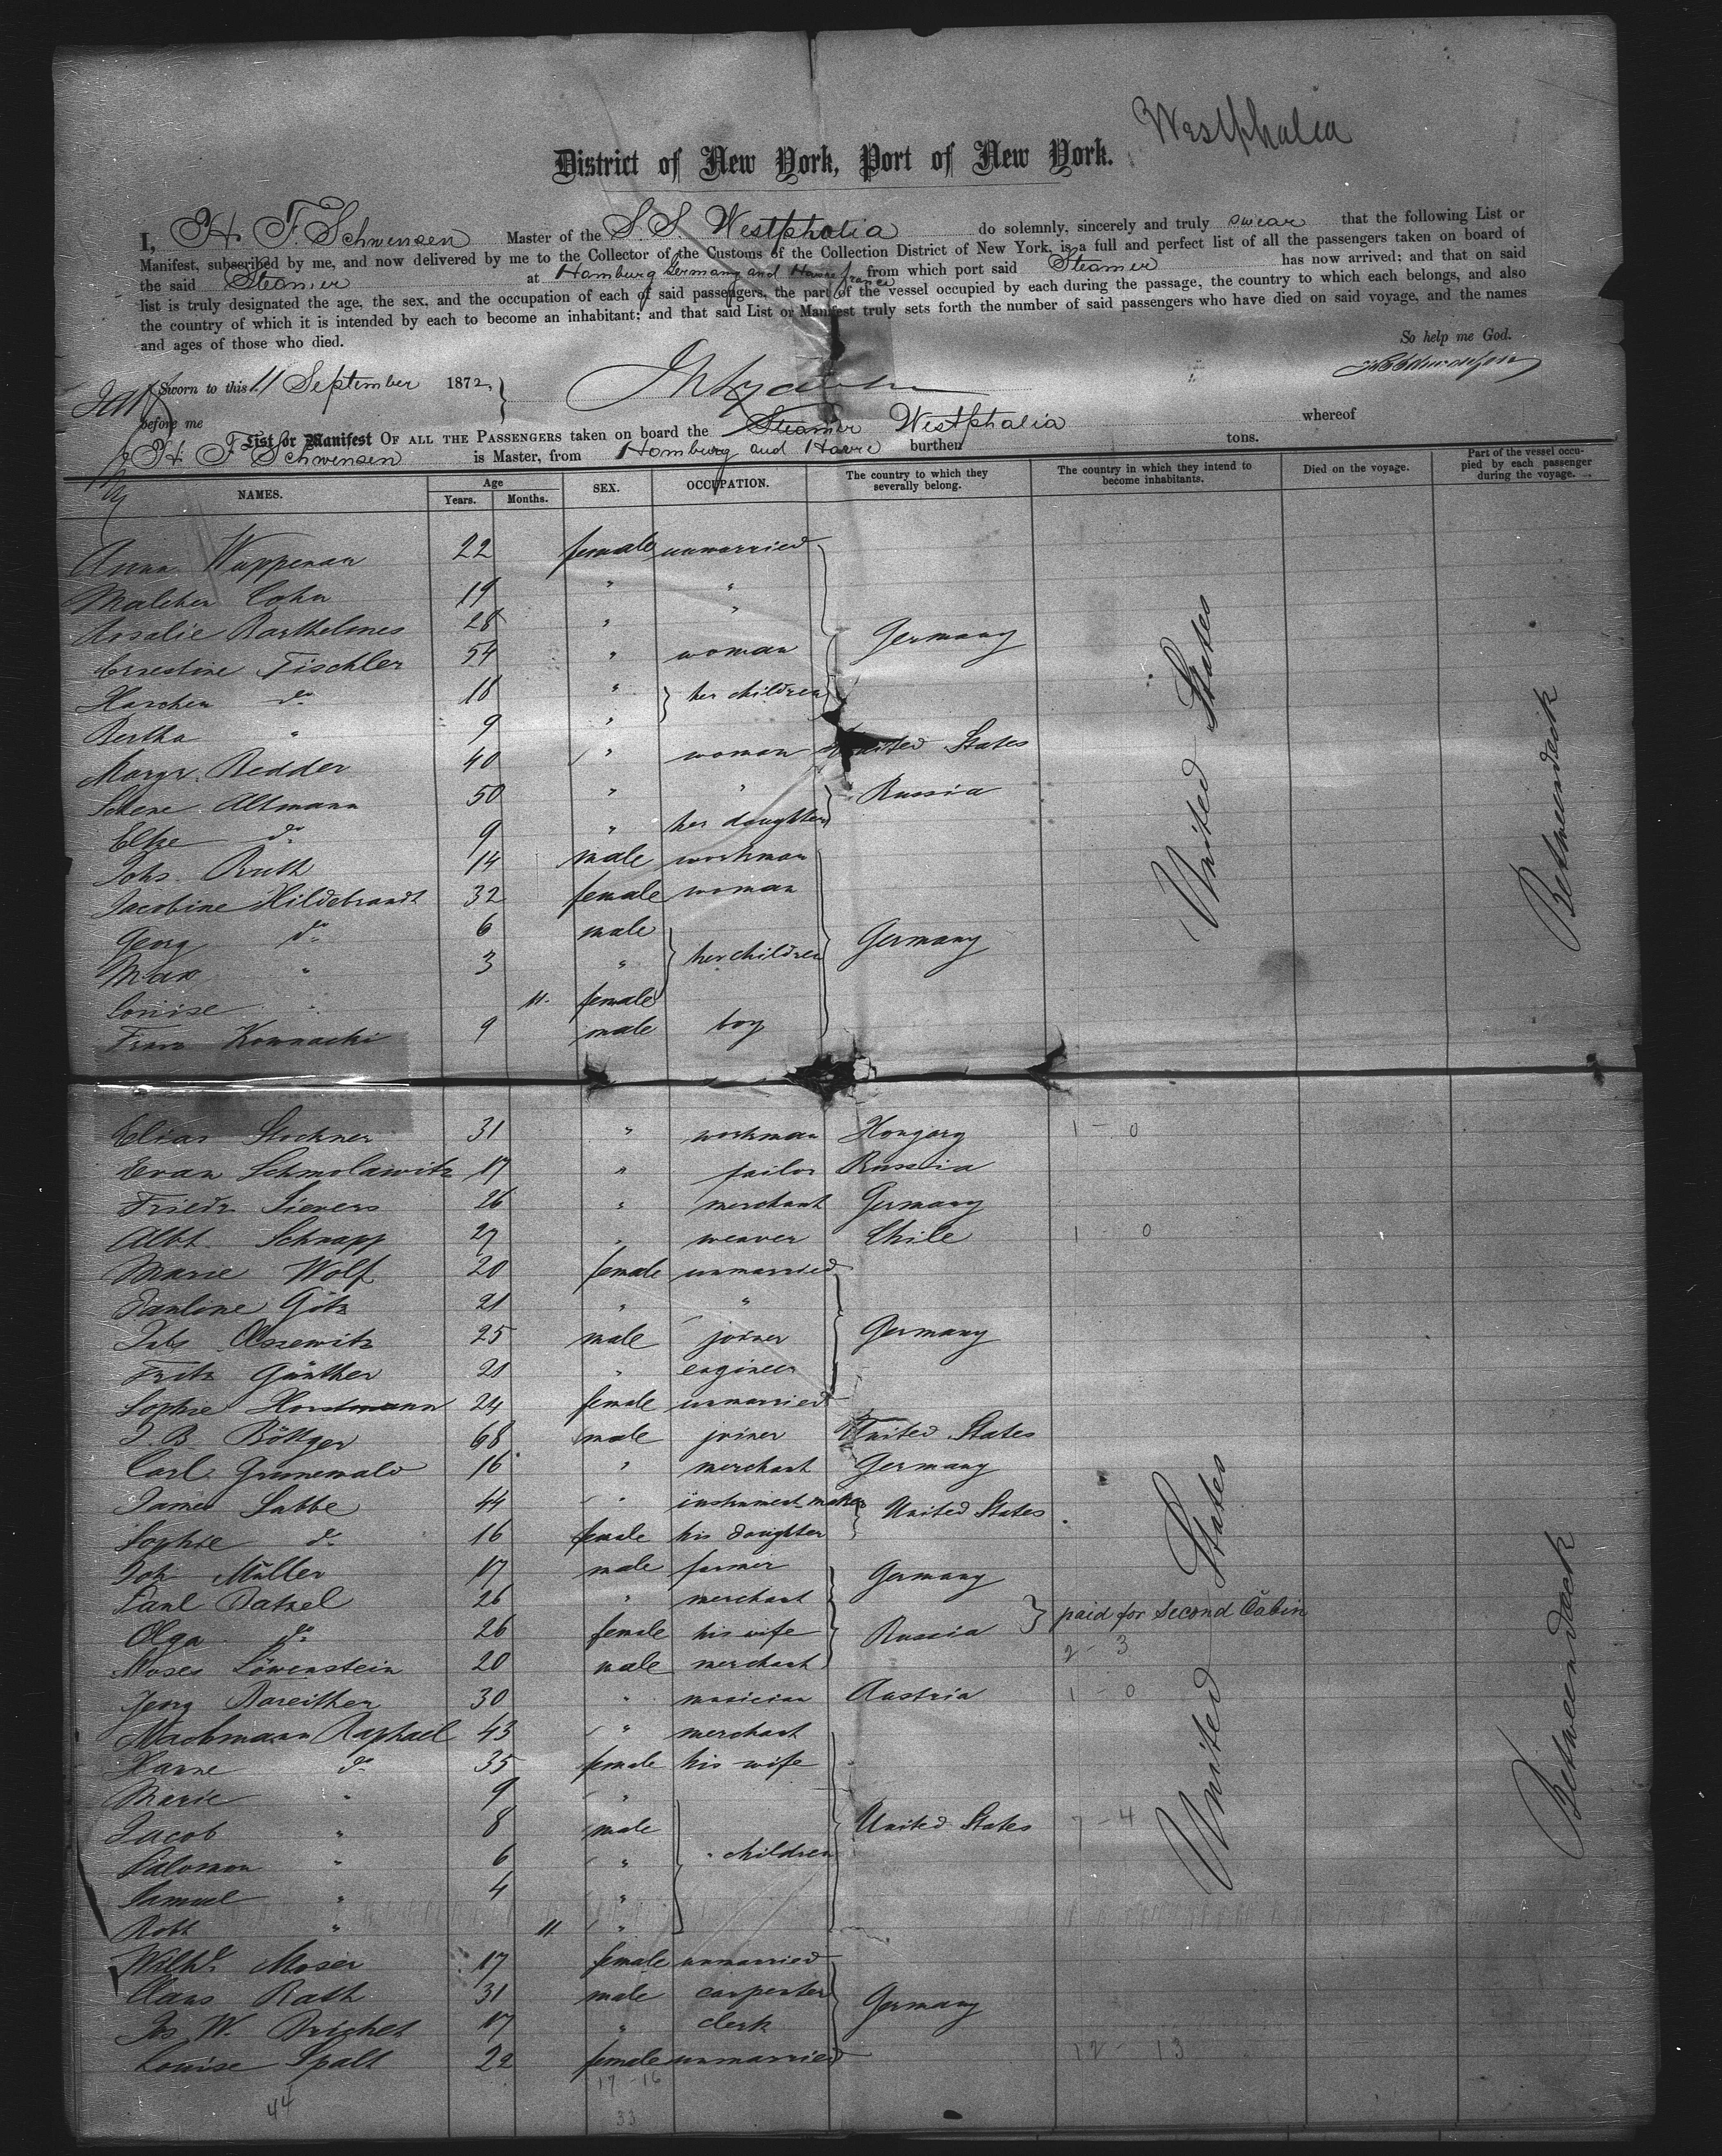 Westphalia
District of New York, Port of New York.
I, H. F. Schwensen Master of the S. S. Westphalia do solemnly, sincerely and truly swear that the following List or
Manifest, subscribed by me, and now delivered by me to the Collector of the Customs of the Collection District of New York, is a full and perfect list of all the passengers taken on board of
the said Steamer at Hamburg Germany and Havre France from which port said Steamer has now arrived; and that on said
list is truly designated the age, the sex, and the occupation of each of said passengers, the part of the vessel occupied by each during the passage, the country to which each belongs, and also
the country of which it is intended by each to become an inhabitant; and that said List or Manifest truly sets forth the number of said passengers who have died on said voyage, and the names
and ages of those who died.
So help me God.
Sworn to this 11 September 1872
before me
List or Manifest OF ALL THE PASSENGERS taken on board the Steamer Westphalia whereof
H. F. Schwensen is Master, from Hamburg and Havre burthen tons.
NAMES. Age Years. Months. SEX. OCCUPATION. The country to which they severally belong. The country in which they intend to become inhabitants. Died on the voyage. Part of the vessel occupied by each passenger during the voyage.
Anna Wuppenan 22 female unmarried
Malchen Cohn 19 " "
Rosalie Barthelmes 28 " "
Ernestine Fischler 54 " woman Germany
Haschen do 18 " her children
Bertha " 9 "
Margr. Bedder 40 " woman United States
Schene Altmann 50 " " Russia
Elke do 9 " her daughter
Johs. Ruth 14 male workman
Jacobine Hildebrandt 32 female woman
Georg do 6 male
Max " 3 " her children Germany
Louise " 11 female
Franz Kownacki 9 male boy
United States
Betweendeck
Elias Stockner 31 " workman Hongary 1 - 0
Evan Schmolawitz 17 " tailor Russia
Friedr Sievers 26 " merchant Germany
Albt. Schnapp 27 " weaver Chile 1 - 0
Marie Wolf 20 female unmarried
Pauline Götz 21 " "
Johs Ossewitz 25 male joiner Germany
Fritz Günther 21 " engineer
Sophie Horstmann 24 female unmarried
J. B. Böttger 68 male joiner United States
Carl Grunewald 16 " merchant Germany
James Labbe 44 " instrument maker United States
Sophie do 16 female his daughter
Joh Müller 17 male farmer Germany
Paul Datzel 26 " merchant
Olga do 26 female his wife Russia paid for Second Cabin
Moses Löwenstein 20 male merchant 2 - 3
Jerg Bareither 30 " musician Austria 1 - 0
Nachmann Raphael 43 " merchant
Hanne do 35 female his wife
Marie " 9 "
Jacob " 8 male United States 7 - 4
Salomon " 6 " children
Samuel " 4 "
Robt " 11 "
Wilhe Moser 17 female unmarried
Claus Rath 31 male carpenter Germany
Js W. Brichet 17 " clerk
Louise Spalt 22 female unmarried 12 - 13
United States
Betweendeck
17 - 16
44
33